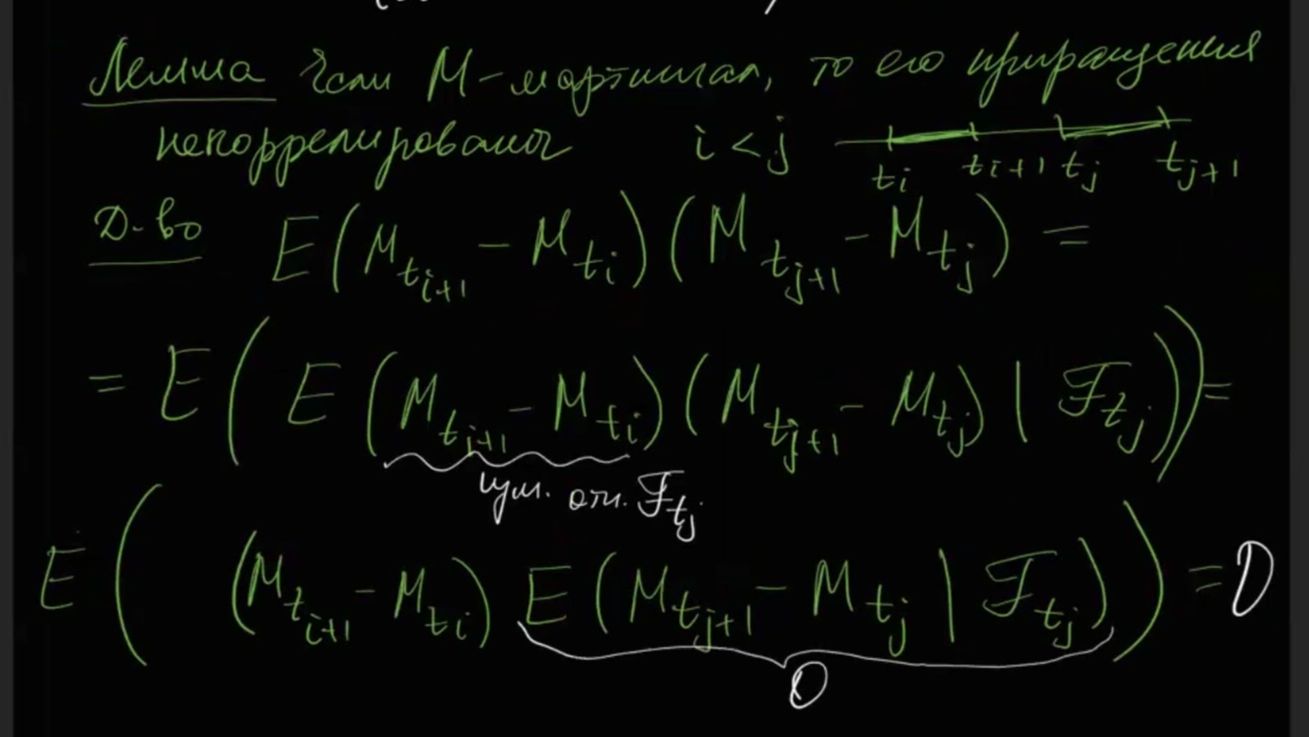 Лемма Если M - мартингал, то его приращения
некоррелированы i < j t_i t_{i+1} t_j t_{j+1}
Д-во E(M_{t_{i+1}} - M_{t_i})(M_{t_{j+1}} - M_{t_j}) =
= E(E(M_{t_{i+1}} - M_{t_i})(M_{t_{j+1}} - M_{t_j}) | ℱ_{t_j})) =
изм. отн. ℱ_{t_j}
E((M_{t_{i+1}} - M_{t_i}) E(M_{t_{j+1}} - M_{t_j} | ℱ_{t_j})) = 0
0